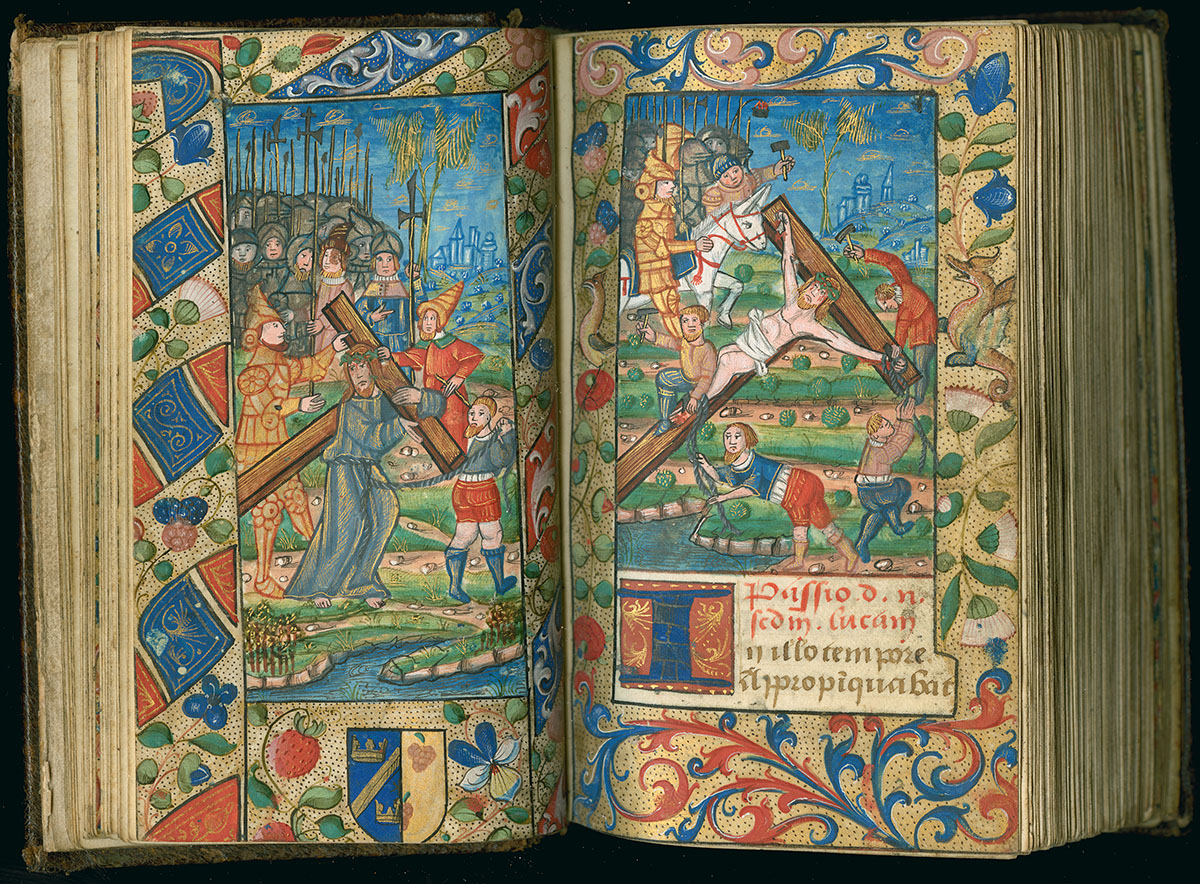 Passio. d. n.
scdm. lucam
In illo tempore.
Appropīquabat